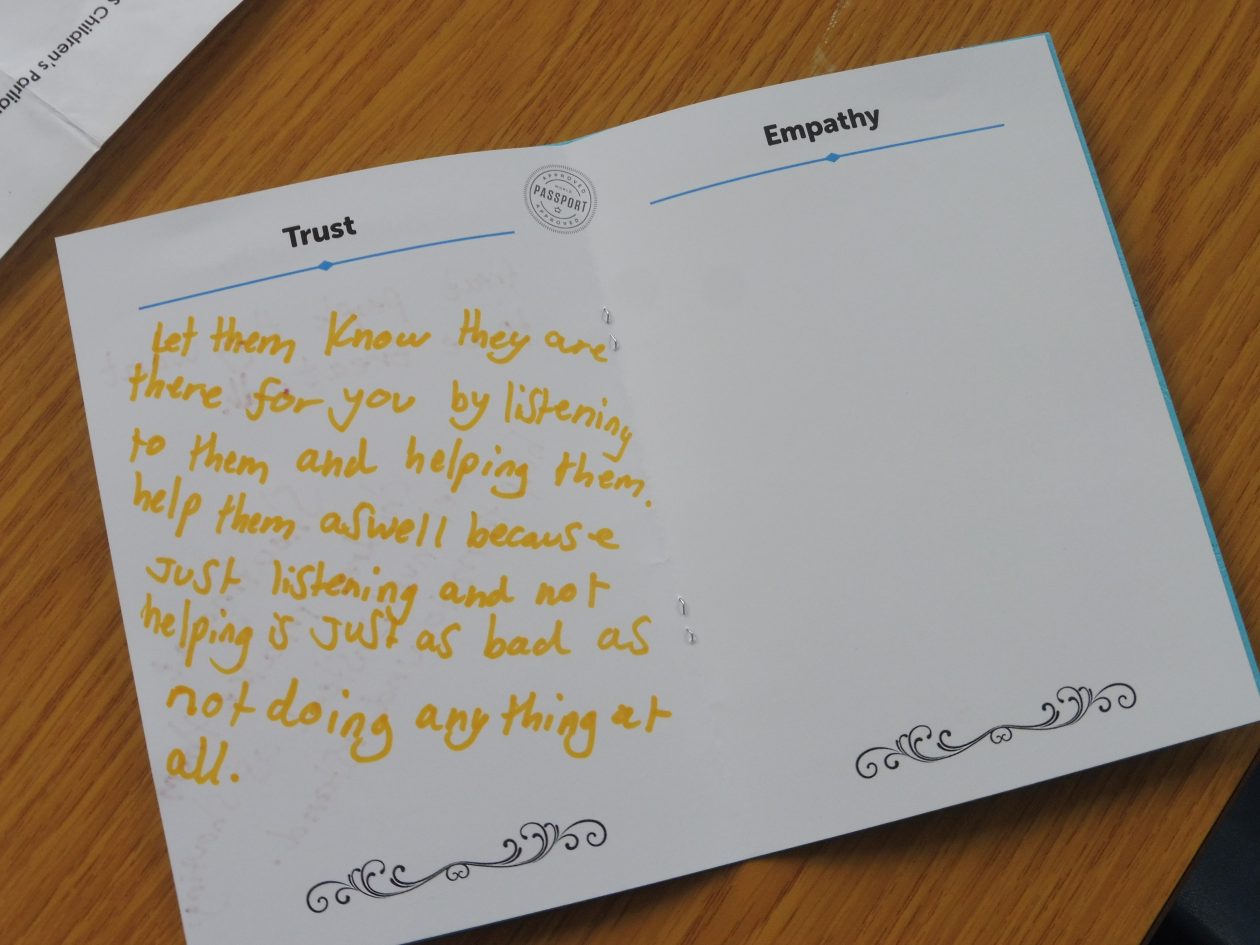 s Children's Parlia
Trust
APPROVED
WORLD
PASSPORT
APPROVED
Let them know they are
there for you by listening
to them and helping them.
help them aswell because
Just listening and not
helping is Just as bad as
not doing any thing at
all.
Empathy